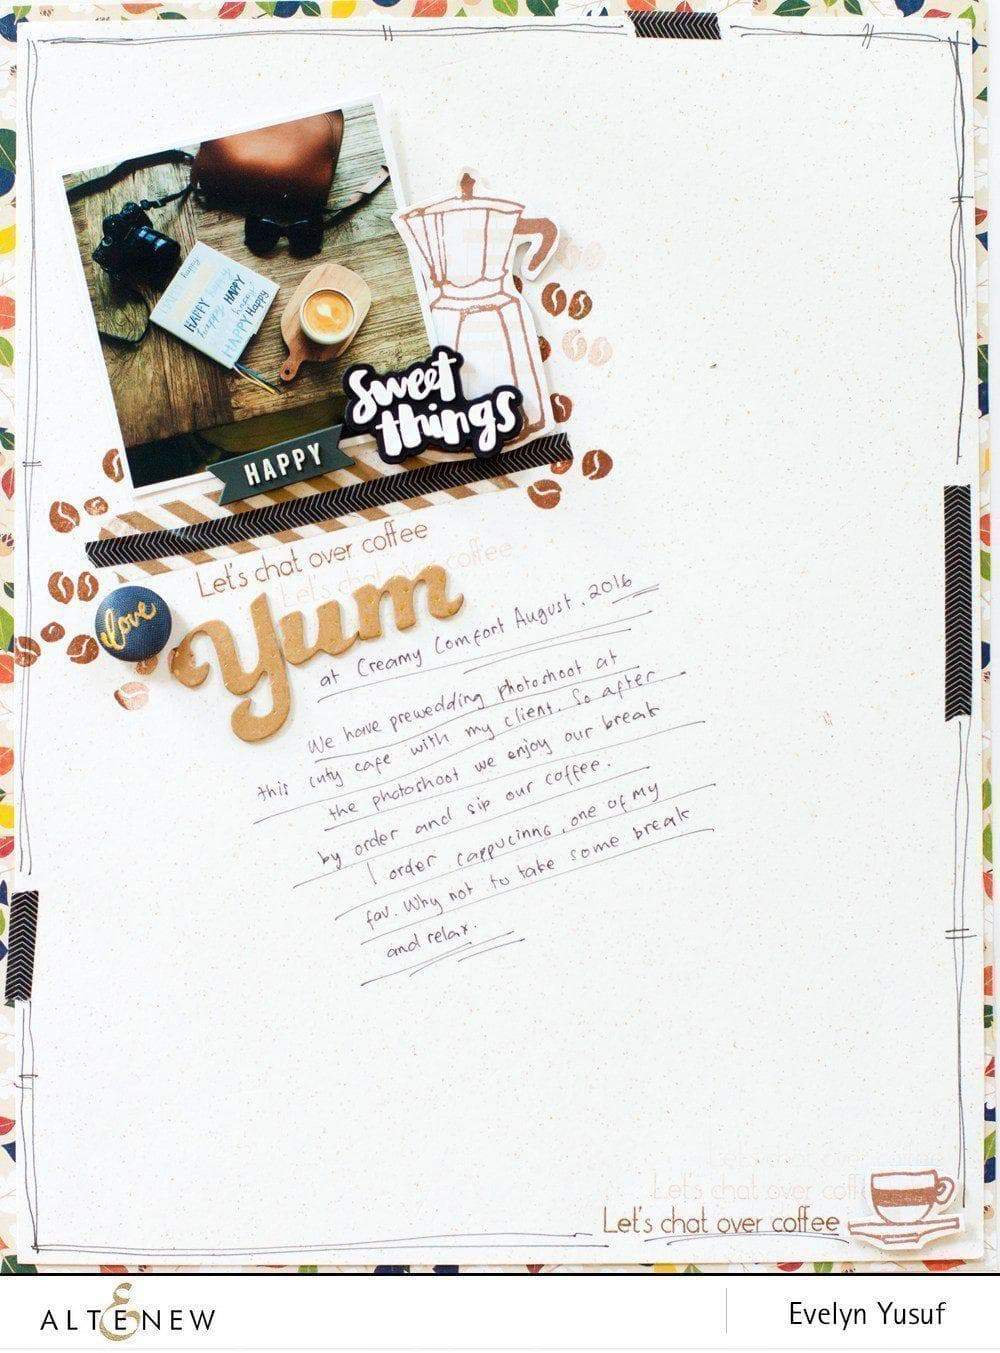 HAPPY HAPPY
happy happy
HAPPY Happy
sweet
things
HAPPY
Let's chat over coffee
Let's chat over coffee
love
Yum
at Creamy Comfort August, 2016
We have prewedding photoshoot at
this cuty cafe with my client. So after
the photoshoot we enjoy our break
by order and sip our coffee.
I order cappucinno, one of my
fav. Why not to take some break
and relax.
Let's chat over coffee
Let's chat over coff
Let's chat over coffee
ALTENEW
Evelyn Yusuf